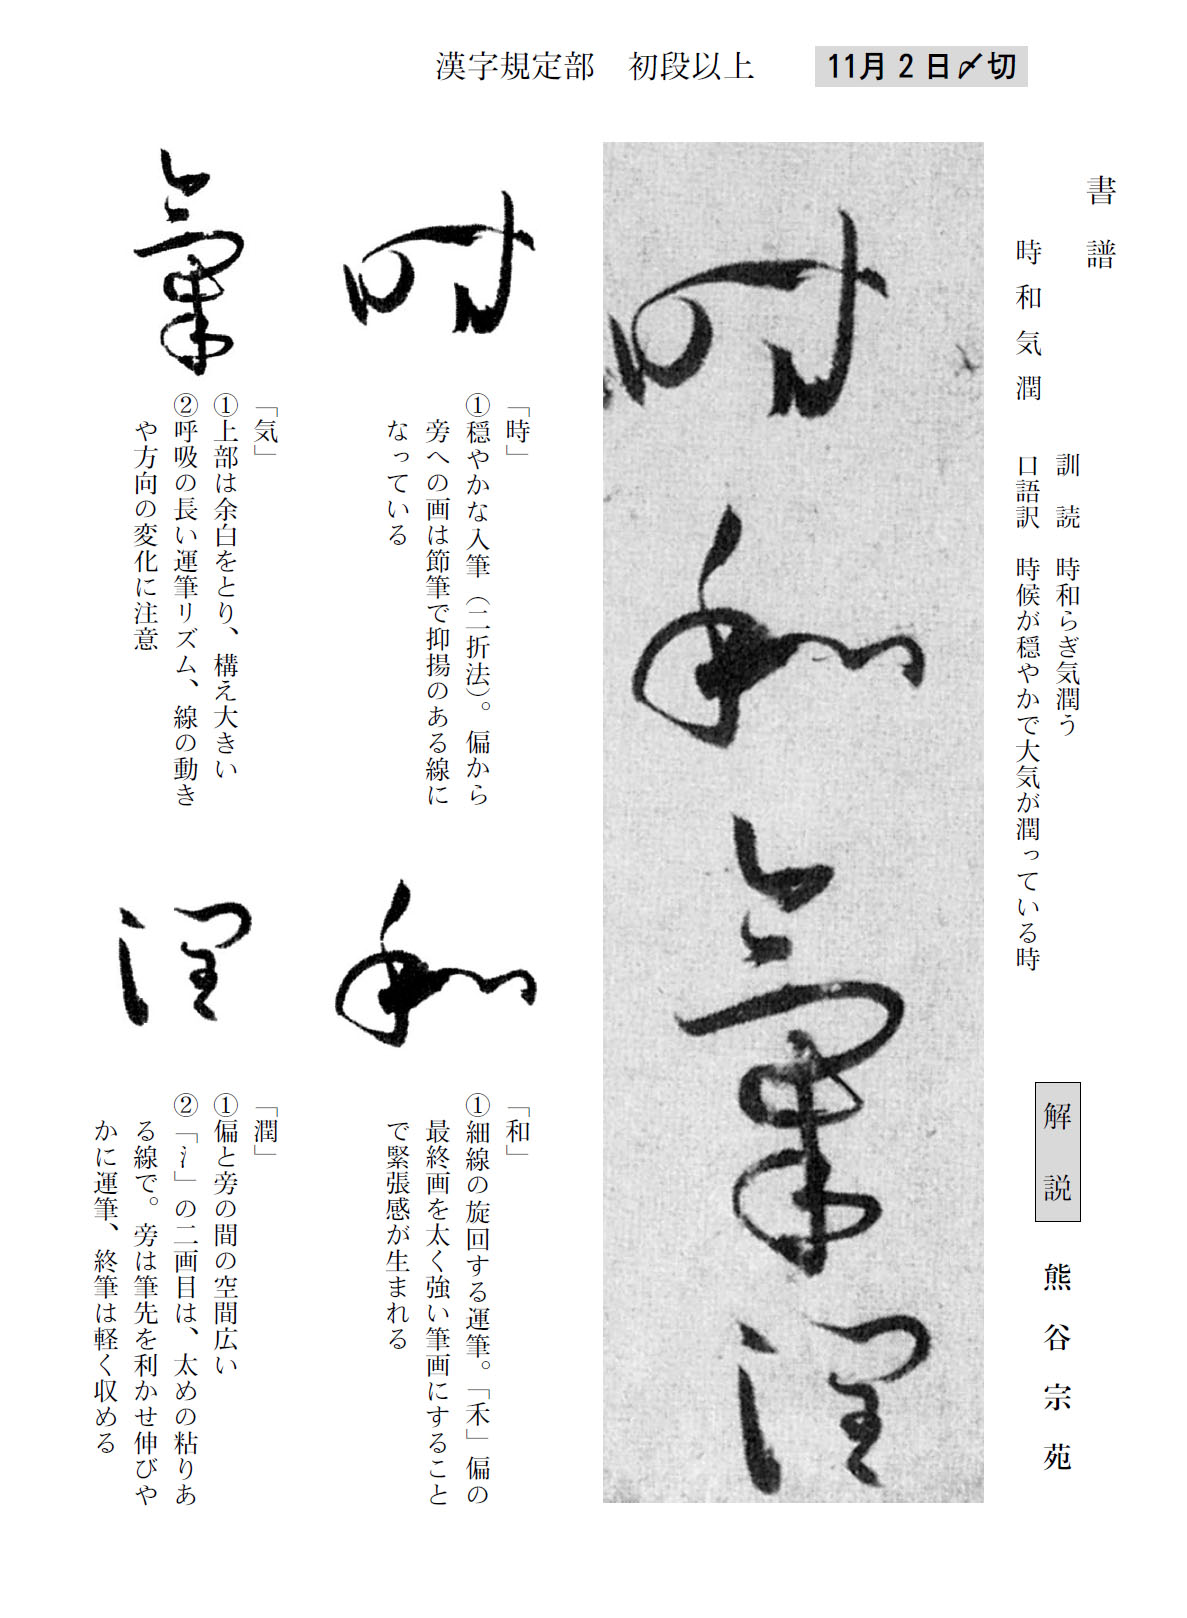 漢字規定部　初段以上
11月2日〆切
書譜
時和気潤
訓読　時和らぎ気潤う
口語訳　時候が穏やかで大気が潤っている時
解説
熊谷宗苑
時和氣潤
時
「時」
①穏やかな入筆（二折法）。偏から
旁への画は節筆で抑揚のある線に
なっている
氣
「気」
①上部は余白をとり、構え大きい
②呼吸の長い運筆リズム、線の動き
や方向の変化に注意
和
「和」
①細線の旋回する運筆。「禾」偏の
最終画を太く強い筆画にすること
で緊張感が生まれる
潤
「潤」
①偏と旁の間の空間広い
②「氵」の二画目は、太めの粘りあ
る線で。旁は筆先を利かせ伸びや
かに運筆、終筆は軽く収める